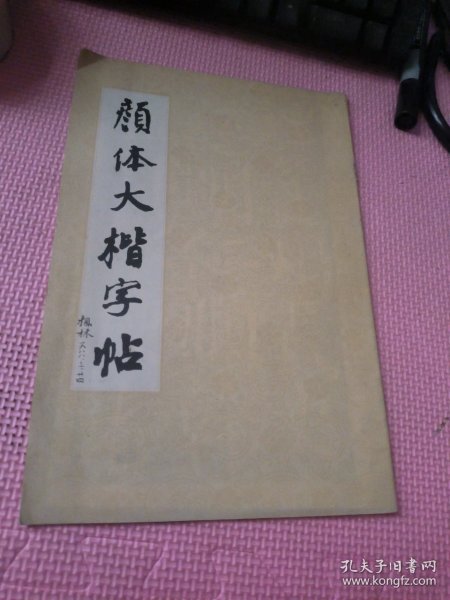 顏体大楷字帖
楓林
孔夫子旧书网
www.kongfz.com